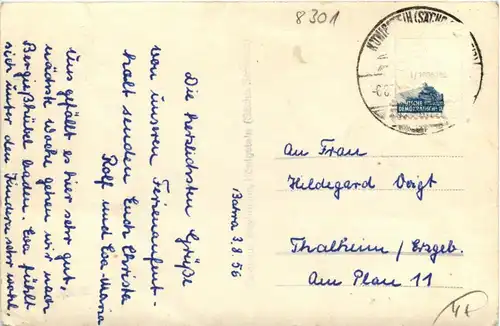 8301
KÖNIGSTEIN (SÄCHS
DEUTSCHE
DEMOKRATISCHE
Bahra 3.8.56
Die herzlichsten Grüße
von unsrem Ferienaufent-
halt senden Euch Christa
Rolf und Eva-Maria
Uns gefällt es hier sehr gut,
nächste Woche gehen wir nach
Berggießhübel baden. Eva fühlt
sich unter den Kindern sehr wohl.
An Frau
Hildegard Voigt
Thalheim / Erzgeb.
Am Plan 11